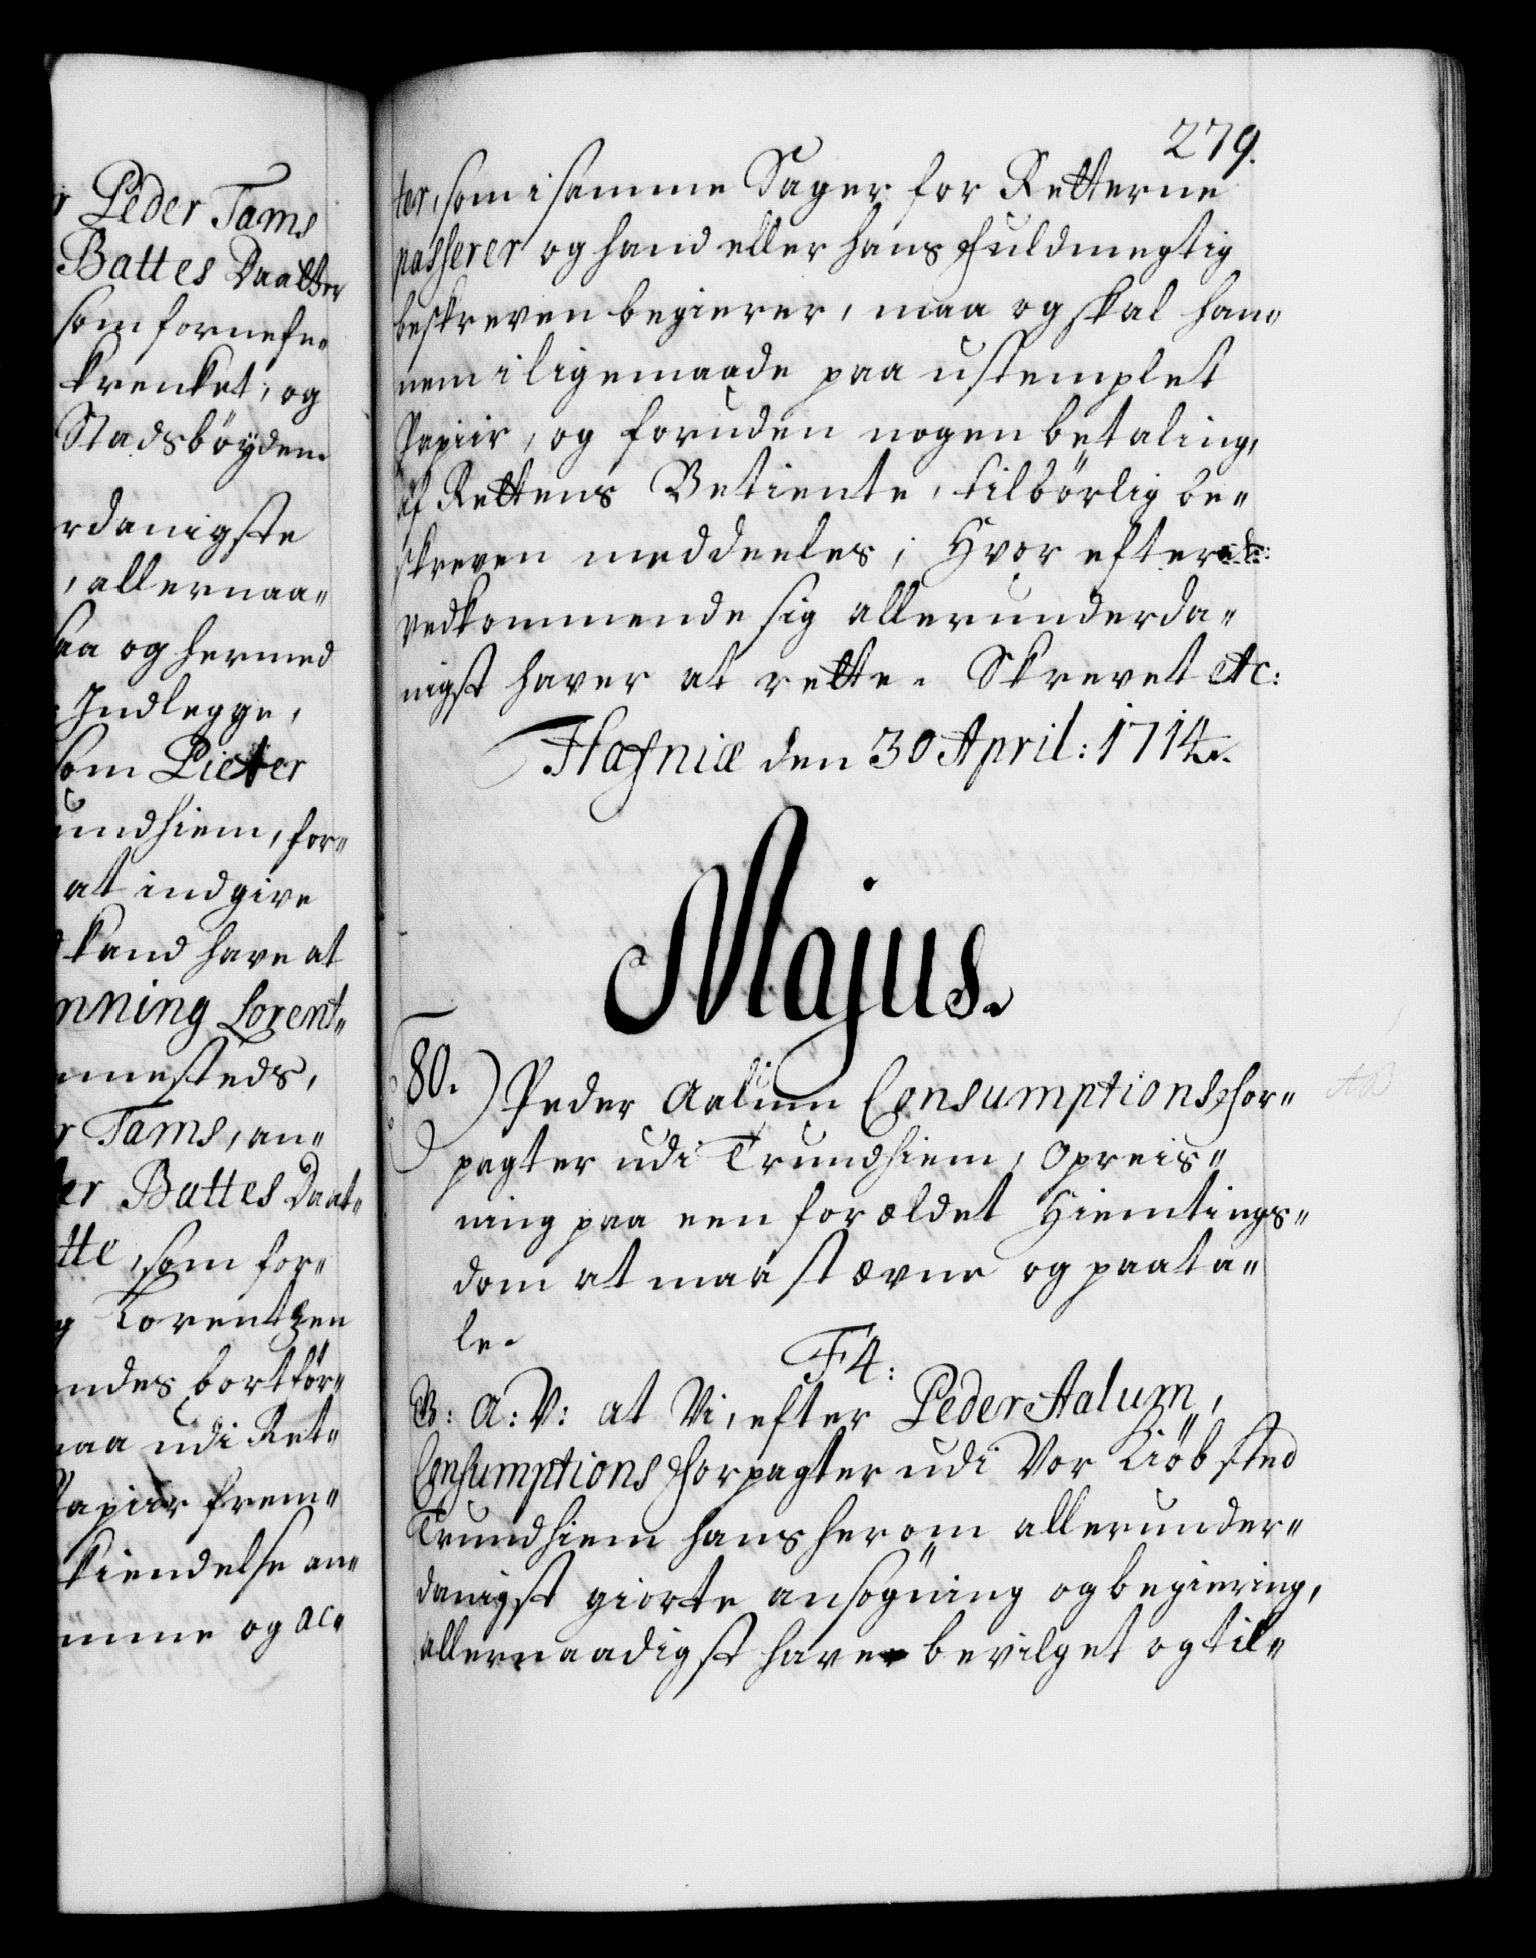 r Peder Tams
Battes Daatter
som fornefn„
krenket, og
Stadsböyden.
rdanigste
, allernaa„
saa og hermed
Indlegge,
som Pieter
undhiem, for„
at indgive
kand have at
nning Lorent„
mmesteds,
r Tams, an„
ter Battes Daat„
tte, som for„
g Lorentzen
ndes bortför„
maa udi Ret„
Papiir frem„
kiendelse an„
mme og ac„
279.
ter, som i samme Sager for Retterne
passerer og hand eller hans Fuldmegtig
beskreven begierer, maa og skal han„
nem i ligemaade paa ustemplet
Papiir, og foruden nogen betaling,
af Rettens Betiente, tilbörlig be„
skreven meddeeles; Hvor efter
vedkommende sig allerunderda„
nigst haver at rette. Skrevet etc:
Hafniæ den 30 April: 1714.
Majus.
80.) Peder Aalum Consumptions For„
pagter udi Trundhiem, Opreis„
ning paa een forældet Hiemtings„
dom at maa stævne og paata„
le.
F4:
G: A: V: at Vi, efter Peder Aalum,
Consumptions Forpagter udi Vor Kiöbsted
Trundhiem hans herom allerunder„
danigst giorte ansögning og begiering,
allernaadigst haver bevilget og til„